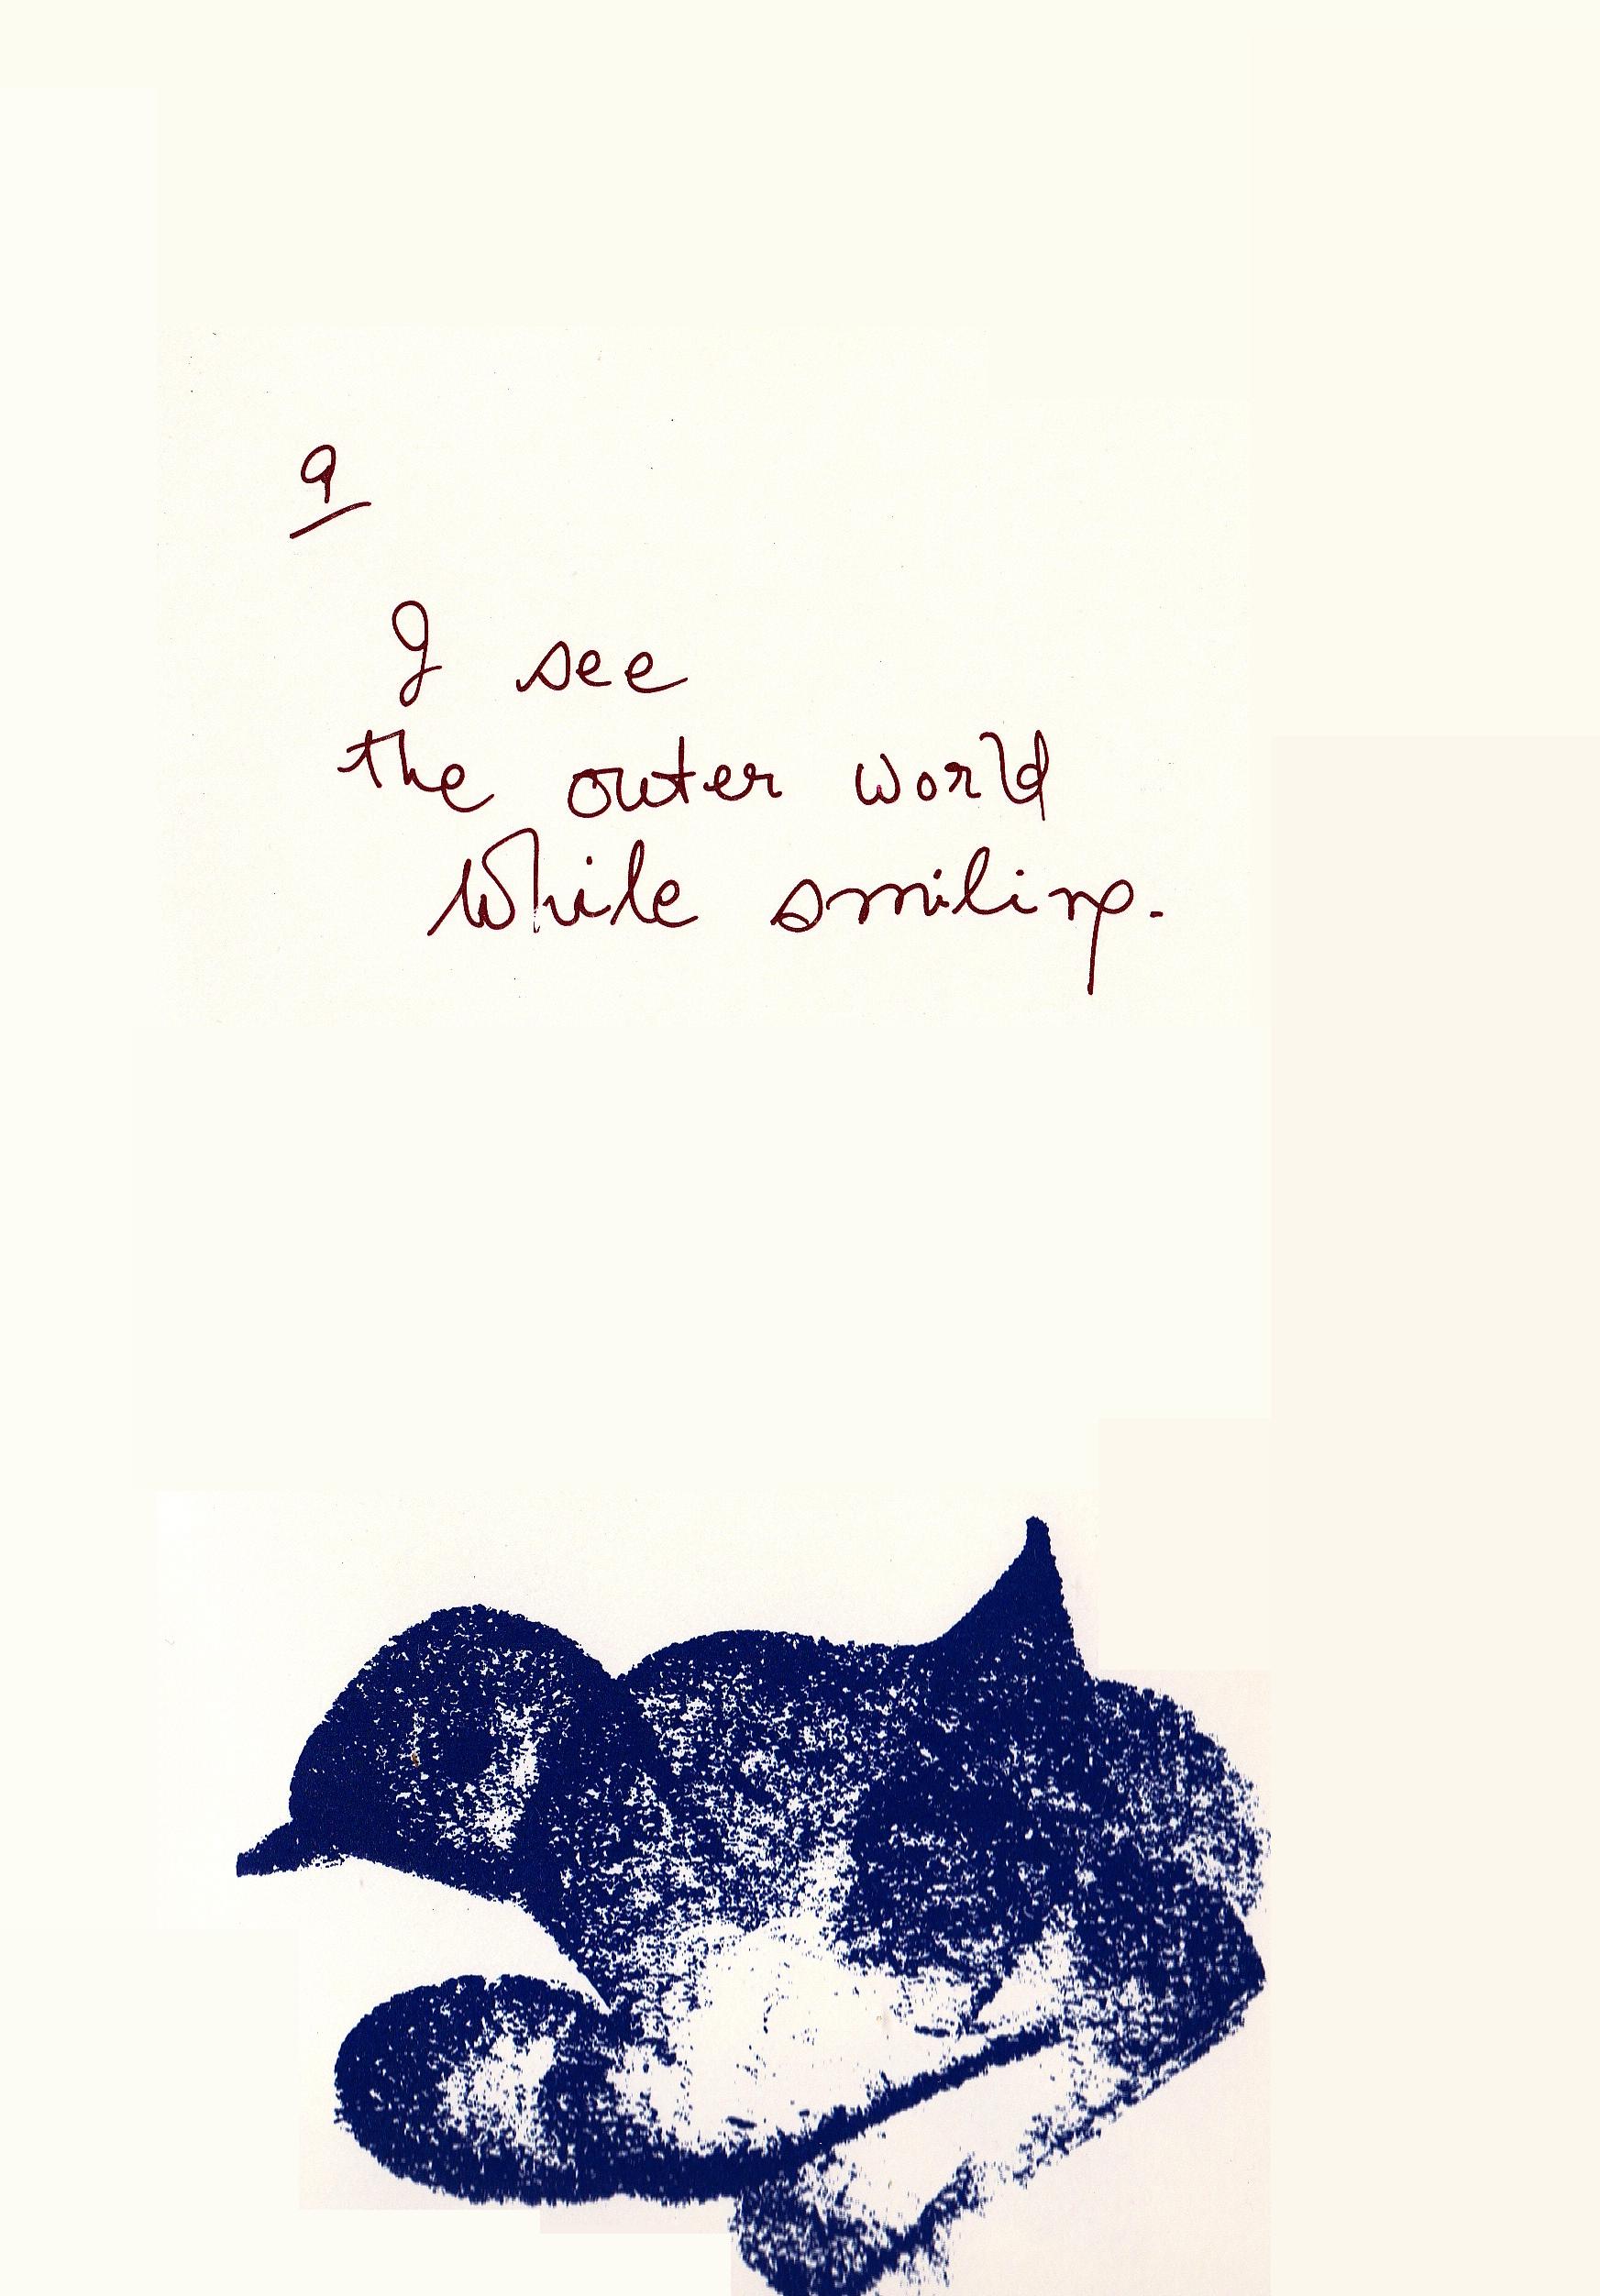 9
I see
the outer world
while smiling.